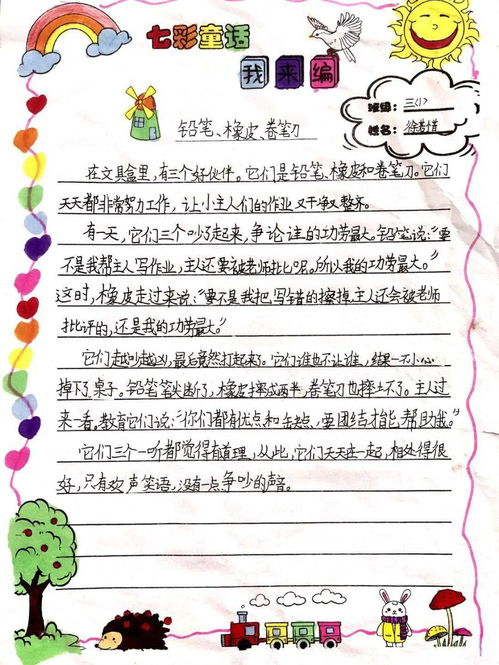 七彩童话
我来编
班级：三(1)
姓名：
铅笔、橡皮、卷笔刀
在文具盒里，有三个好伙伴。它们是铅笔、橡皮和卷笔刀。它们
天天都非常努力工作，让小主人们的作业又干净又整齐。
有一天，它们三个吵了起来，争论谁的功劳最大。铅笔说：“要
不是我帮主人写作业，主人还要被老师批呢。所以我的功劳最大。”
这时，橡皮走过来说：“要不是我把写错的擦掉主人还会被老师
批评的，还是我的功劳最大。”
它们越吵越凶，最后竟然打起来了。它们谁也不让谁，结果一不小心
掉下了桌子。铅笔笔尖断了，橡皮摔成两半，卷笔刀也摔上不了。主人过
来一看。教育它们说：“你们都有优点和缺点，要团结才能帮助我。”
它们三个一听都觉得有道理，从此，它们天天在一起，相处得很
好，只有欢声笑语，没有一点争吵的声音。